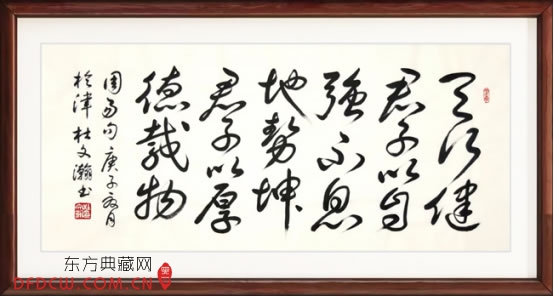 天行健
君子以自
強不息
地勢坤
君子以厚
德載物
周易句 庚子月
於津 杜文瀚书
东方典藏网
DFDCW.COM.CN